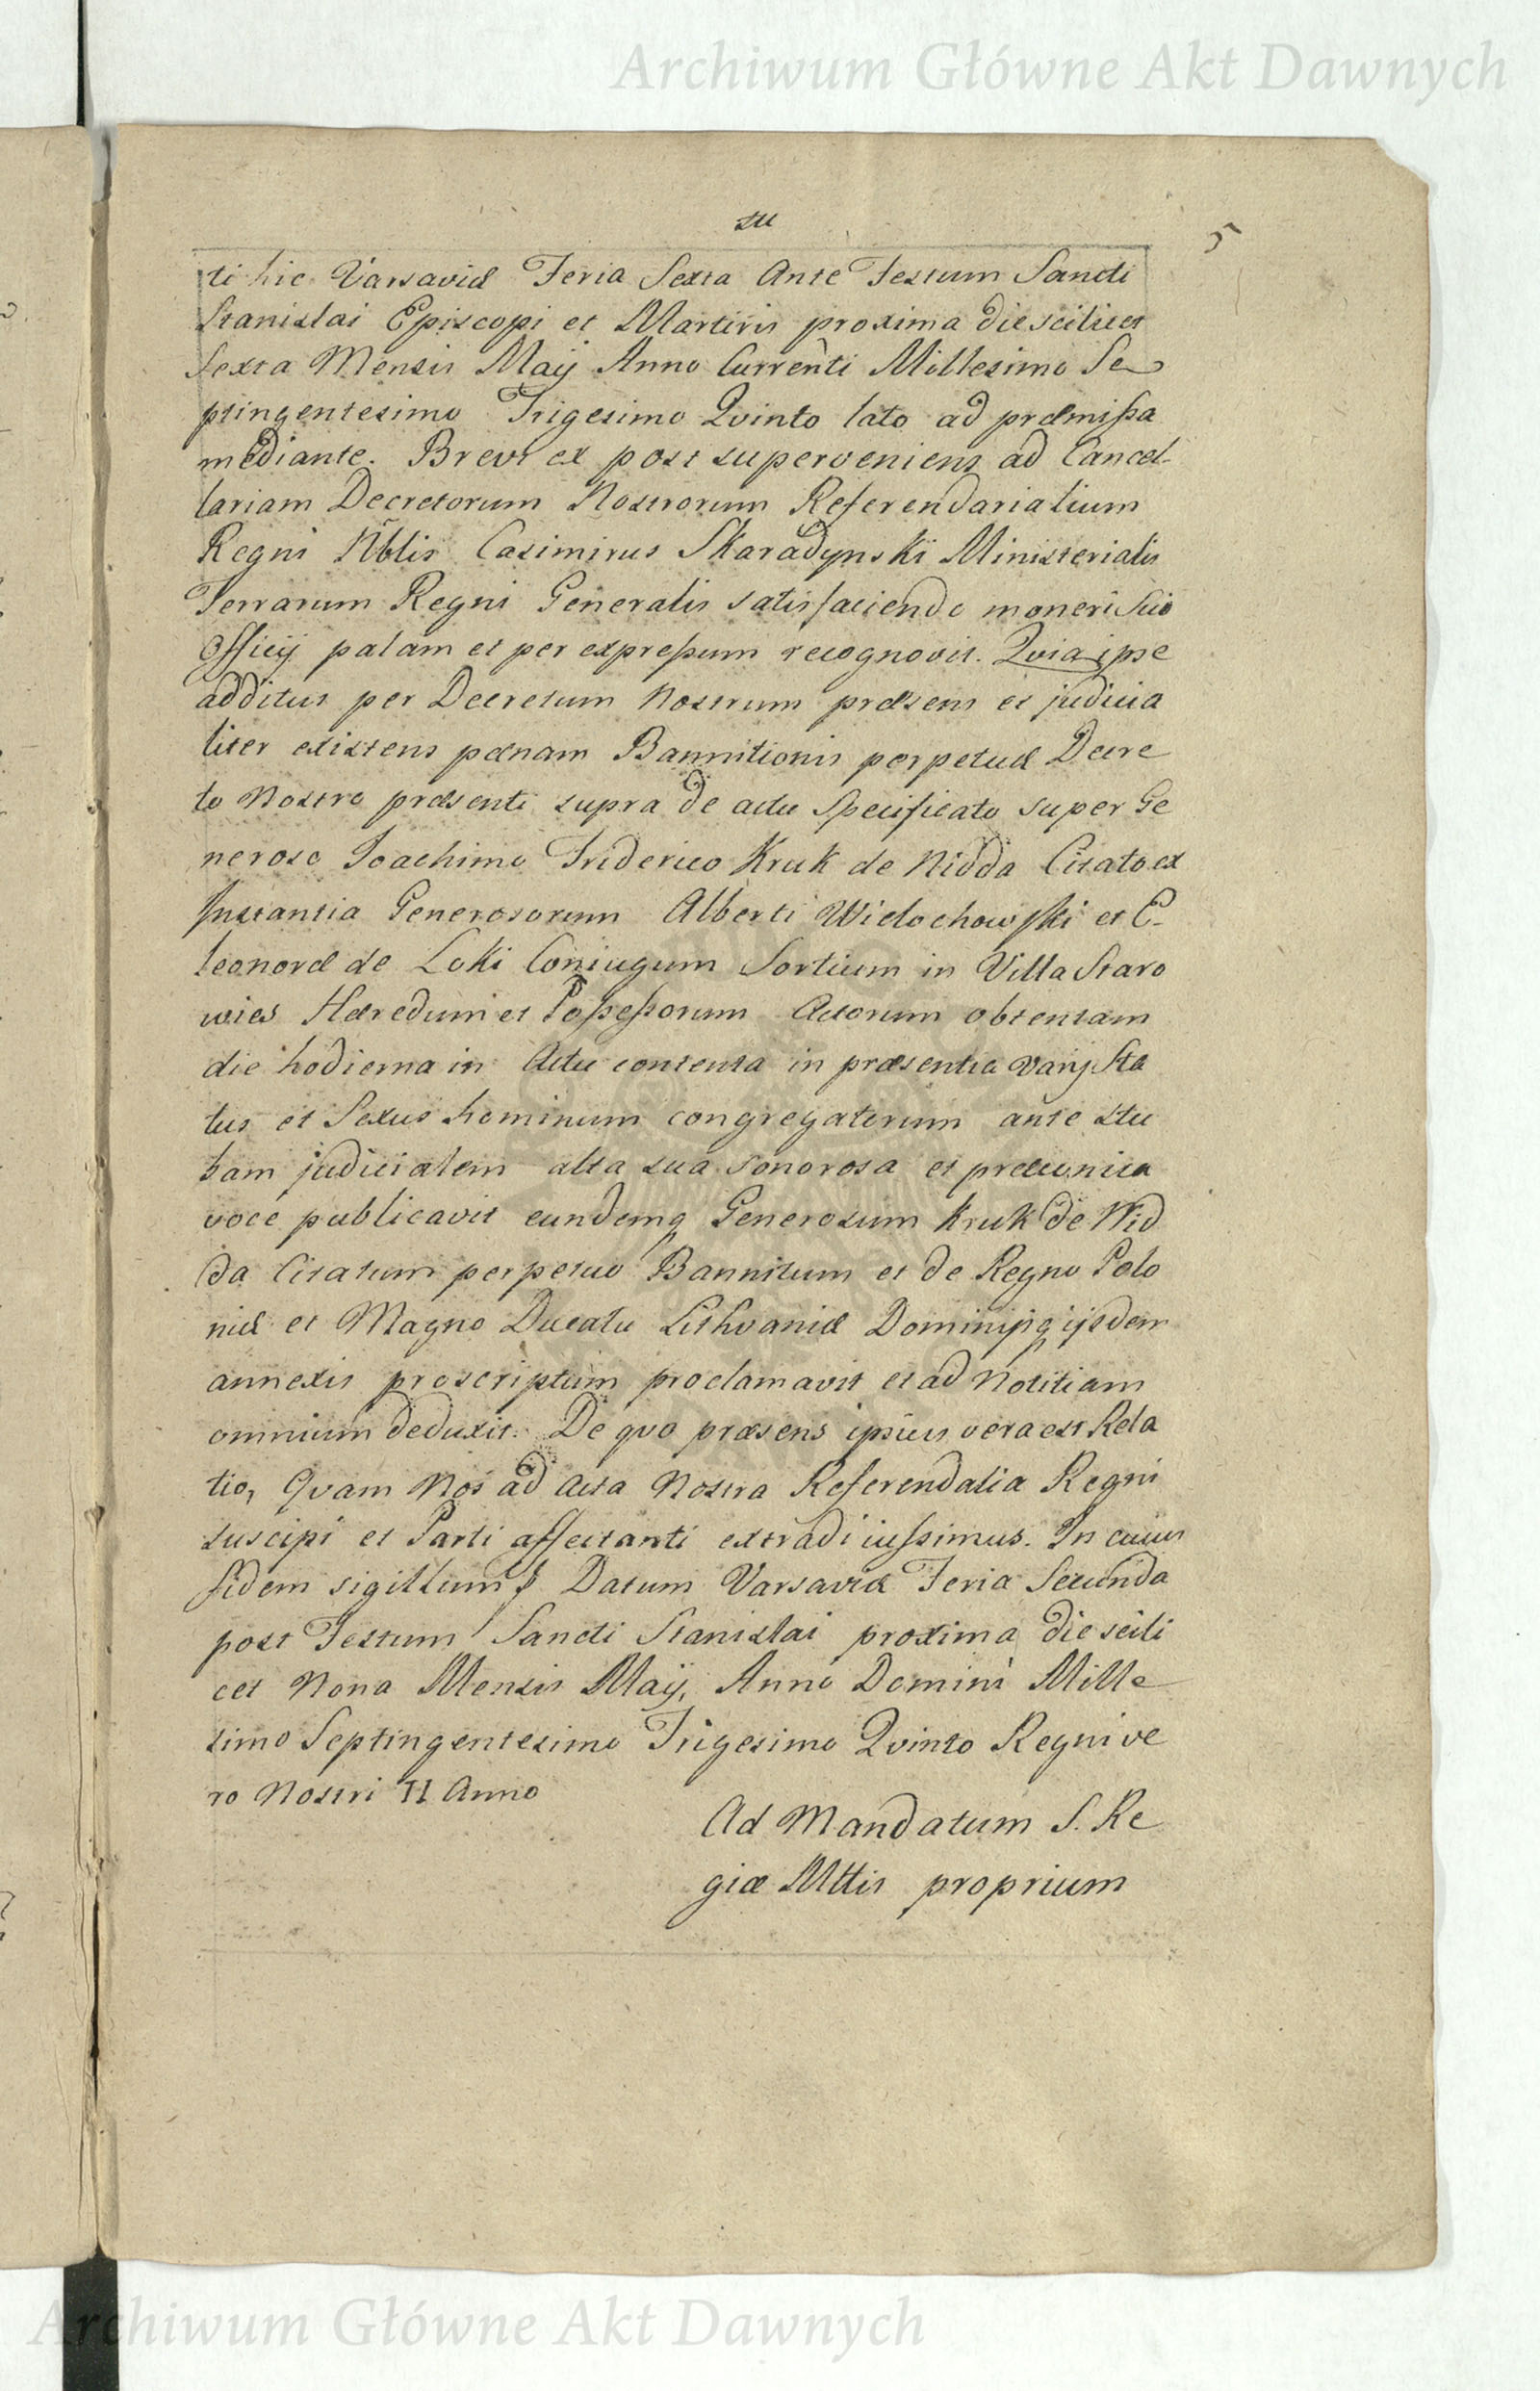 Archiwum Główne Akt Dawnych
5
ti hic Varsaviæ Feria Sexta Ante Festum Sancti
Stanislai Episcopi et Martiris proxima die scilicet
Sexta Mensis Maÿ Anno Currenti Millesimo Se
ptingentesimo Trigesimo Qvinto lato ad præmissa
mediante. Brevi ex post superveniens ad Cancel-
lariam Decretorum Nostrorum Referendarialium
Regni Nblis Casimirus Skaradynski Ministerialis
Terrarum Regni Generalis satisfaciendo moneri Sui
Officÿ palam et per expressum recognovit. Qvia ipse
additus per Decretum Nostrum præsens et judicia
liter existens pænam Bannitionis perpetuæ Decre
to Nostro præsenti supra de actu Specificato super Ge
neroso Joachimo Friderico Kruk de Nidda Citato ex
Instantia Generosorum Alberti Wielochowski et E-
leonoræ de Loki Coniugum Sortium in Villa Staro
wies Hæredum et Possessorum Actorum obtentam
die hodierna in Actu contenta in præsentia varÿ Sta
tus et Sexus hominum congregatorum ante Stu
bam judicialem alta sua sonorosa et præconica
voce publicavit eundemq Generosum Kruk de Nid
da Citatum perpetuo Bannitum et de Regno Polo
niæ et Magno Ducatu Lithvaniæ Dominijsq ijsdem
annexis proscriptum proclamavit et ad Notitiam
omnium deduxit. De qvo præsens ipsius vera est Rela
tio, Qvam Nos ad Acta Nostra Referendalia Regni
suscipi et Parti affectanti extradi iussimus. In cuius
fidem sigillum Datum Varsaviæ Feria Secunda
post Festum Sancti Stanislai proxima die scili
cet Nona Mensis Maÿ, Anno Domini Mille
simo Septingentesimo Trigesimo Qvinto Regni ve
ro Nostri II Anno
Ad Mandatum S. Re
giæ Mttis proprium
Archiwum Główne Akt Dawnych